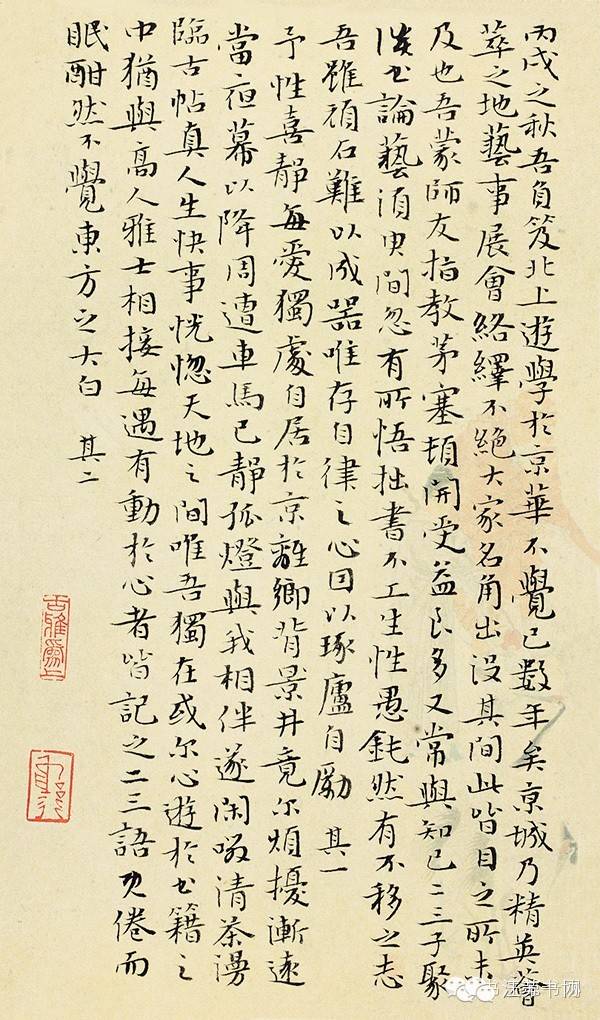 丙戌之秋吾負笈北上遊學於京華不覺已數年矣京城乃精英薈
萃之地藝事展會絡繹不絕大家名角出沒其間此皆目之所未
及也吾蒙師友指教茅塞頓開受益良多又常與知己二三子聚
談書論藝須臾間忽有所悟拙書不工生性愚鈍然有不移之志
吾雖頑石難以成器唯存自律之心因以琢廬自勵 其一
予性喜靜每愛獨處自居於京離鄉背景井竟尔煩擾漸遠
當夜幕以降周遭車馬已靜孤燈與我相伴遂閑啜清茶漫
臨古帖真人生快事恍惚天地之間唯吾獨在或尔心遊於書籍之
中猶與高人雅士相接每遇有動於心者皆記之二三語更倦而
眠酣然不覺東方之大白 其二